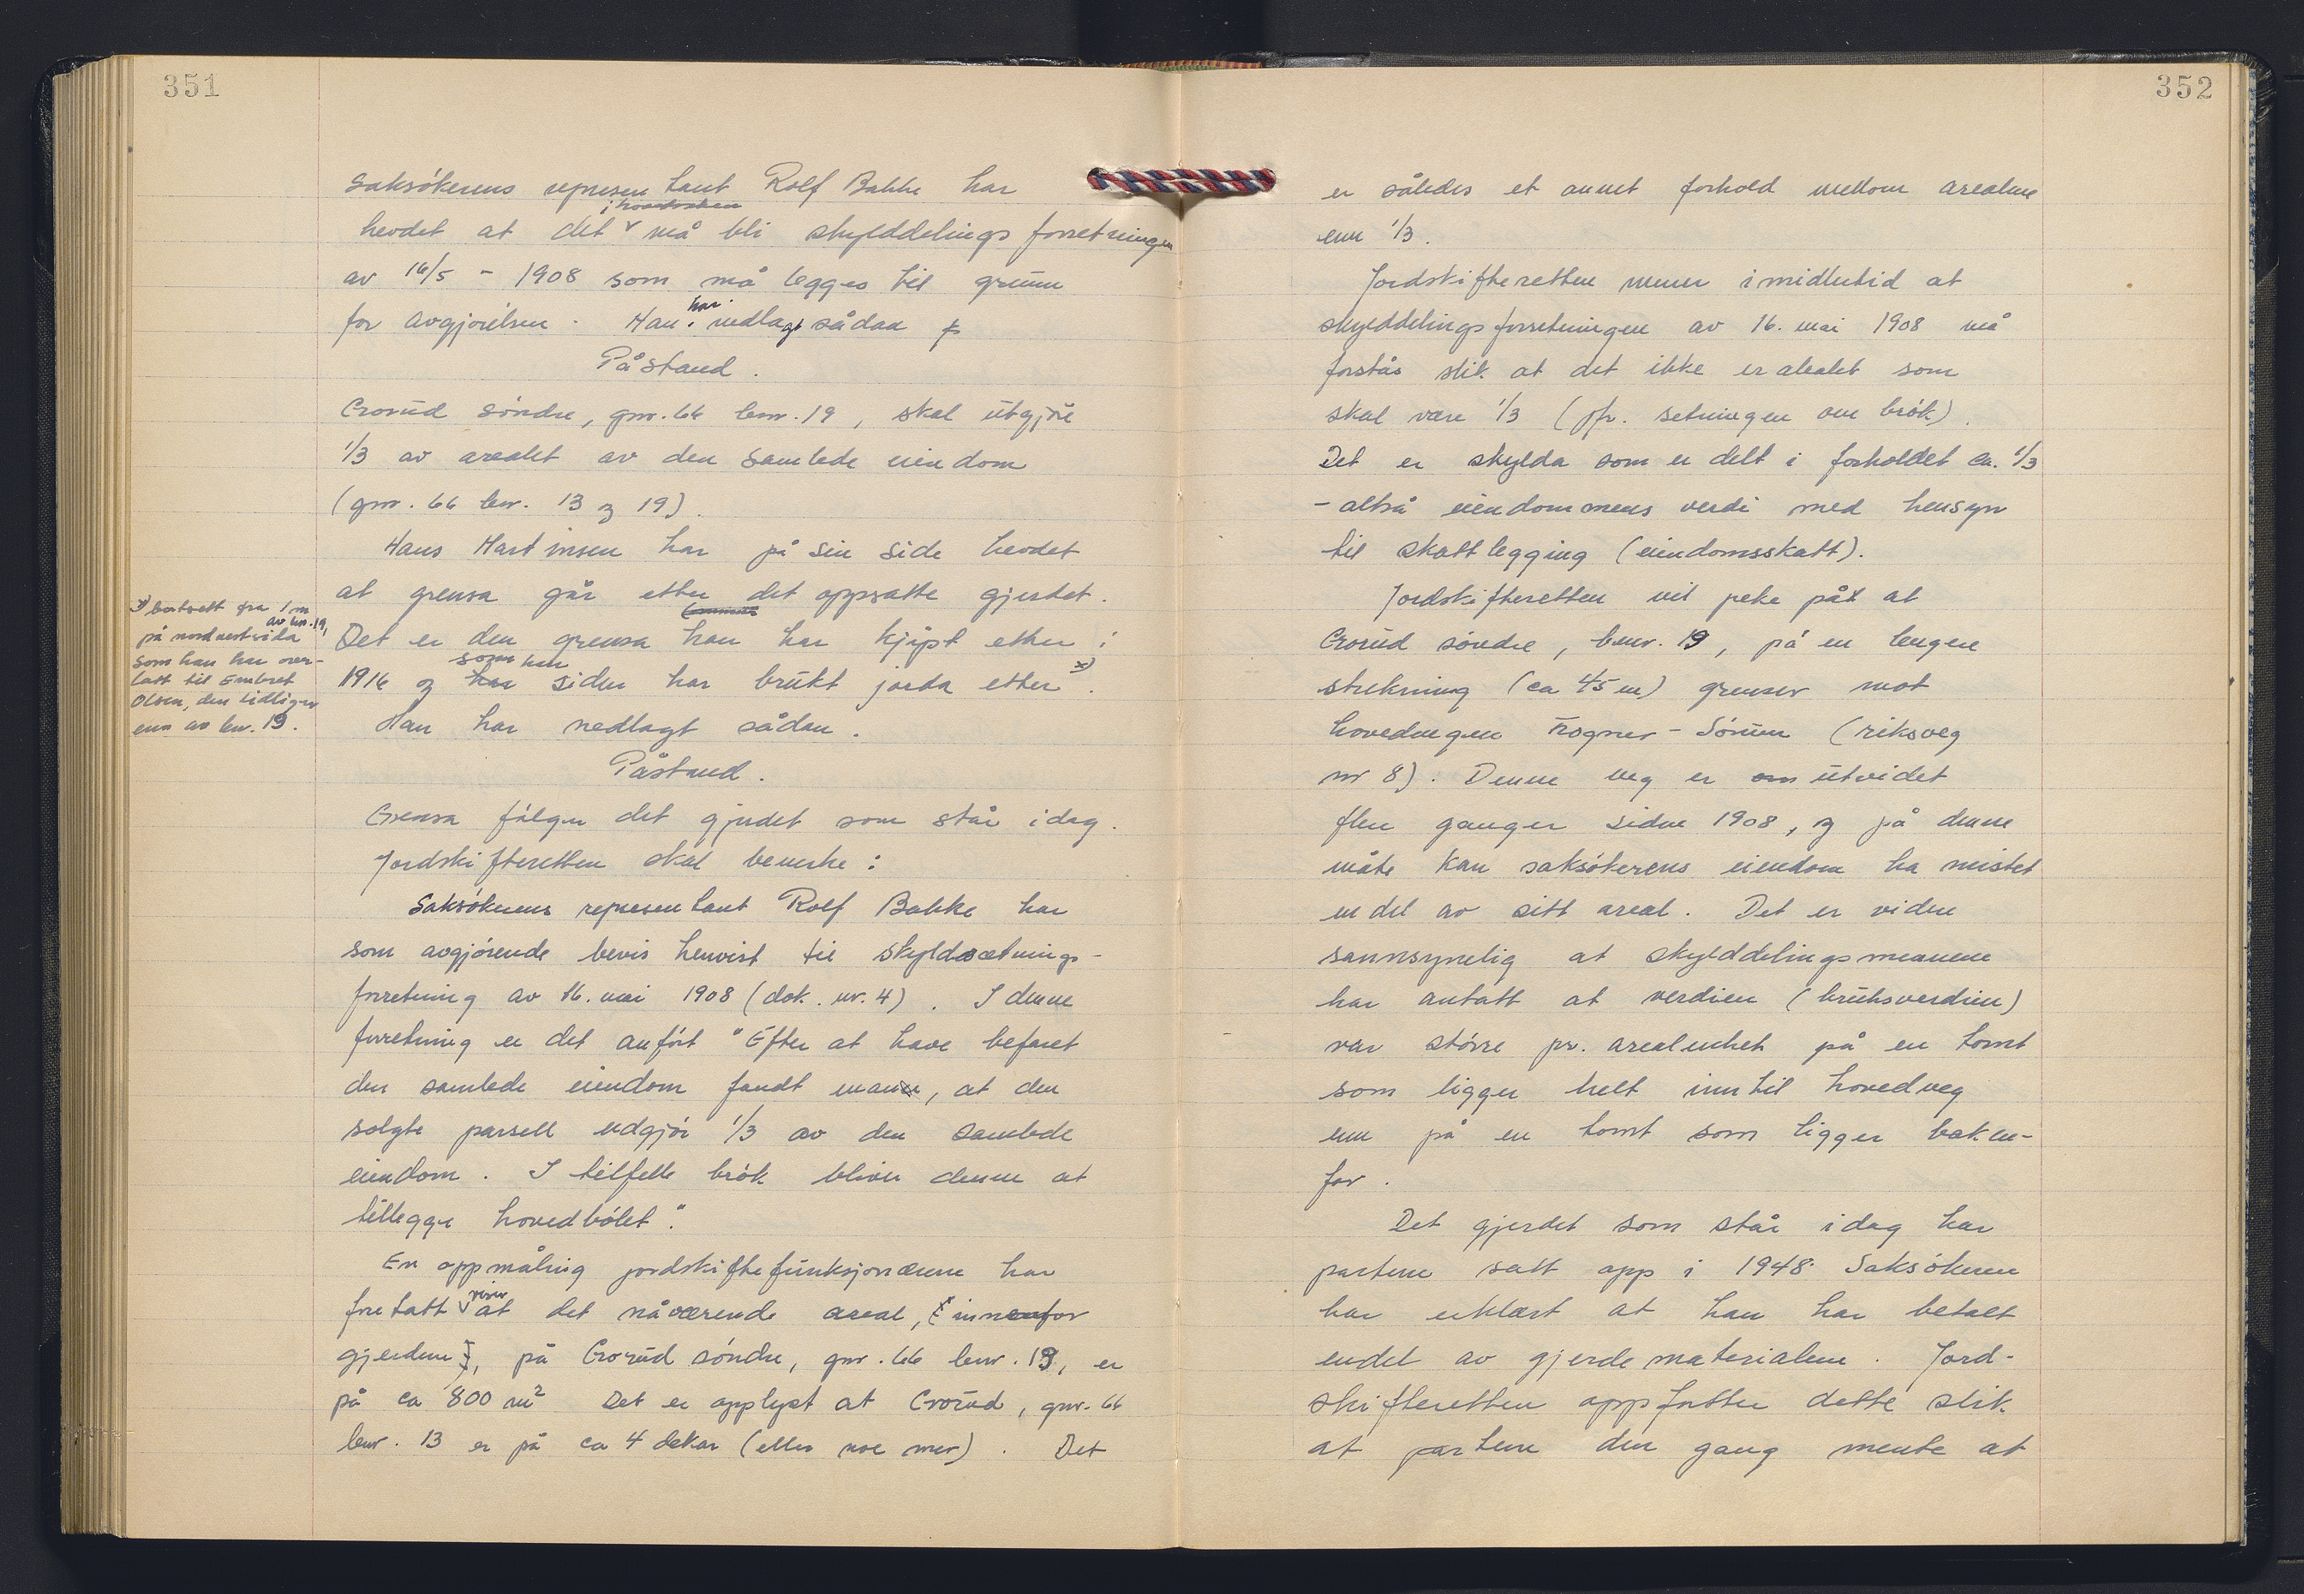 351
Saksökerens representant Rolf Bakke har
hevdet at det i hovedsaken må bli skylddelingsforretningen
av 16/5 - 1908 som må legges til grunn
for avgjörelsen. Han har nedlagt sådan
Påstand.
Crorud söndre, gnr. 66 bnr. 19, skal utgjöre
1/3 av arealet av den samlede eiendom
(gnr. 66 bnr. 13 og 19).
Hans Martinsen har på sin side hevdet
at grensa går etter det oppsatte gjerdet.
Det er den grensa han har kjöpt etter i
1916 og som han siden har brukt jorda etter x).
x) bortsett fra 1 m
på nordvestsida av bnr. 19,
som han har over-
latt til Embret
Olsen, den tidligere
eier av bnr. 19.
Han har nedlagt sådan.
Påstand.
Grensa fölger det gjerdet som står idag.
Jordskifteretten skal bemerke:
Saksökerens representant Rolf Bakke har
som avgjörende bevis henvist til skyldsætnings-
forretning av 16. mai 1908 (dok. nr. 4). I denne
forretning er det anfört "Efter at have befaret
den samlede eiendom fandt man, at den
solgte parsell udgjör 1/3 av den samlede
eiendom. I tilfelle brök bliver denne at
tillegge hovedbölet."
En oppmåling jordskiftefunksjonærene har
foretatt viser at det nåværende areal, innenfor
gjerdene, på Crorud söndre, gnr. 66 bnr. 19, er
på ca 800 m2 Det er opplyst at Crorud, gnr. 66
bnr. 13 er på ca 4 dekar (eller noe mer). Det
352
er således et annet forhold mellom arealene
enn 1/3.
Jordskifteretten mener imidlertid at
skylddelingsforretningen av 16. mai 1908 må
forstås slik at det ikke er arealet som
skal være 1/3 (jfr. setningen om brök).
Det er skylda som er delt i forholdet ca. 1/3
- altså eiendommens verdi med hensyn
til skattlegging (eiendomsskatt).
Jordskifteretten vil peke på at
Crorud söndre, bnr. 19, på en lengere
strekning (ca 45 m) grenser mot
hovedvegen Frogner - Sörum (riksveg
nr 8). Denne veg er utvidet
flere ganger siden 1908, og på denne
måte kan saksökerens eiendom ha mistet
en del av sitt areal. Det er videre
sannsynelig at skylddelingsmennene
har antatt at verdien (bruksverdien)
var större pr. arealenhet på en tomt
som ligger helt inntil hovedveg
enn på en tomt som ligger baken-
for.
Det gjerdet som står idag har
partene satt opp i 1948. Saksökeren
har erklært at han har betalt
endel av gjerdematerialene. Jord-
skifteretten oppfatter dette slik
at partene den gang mente at